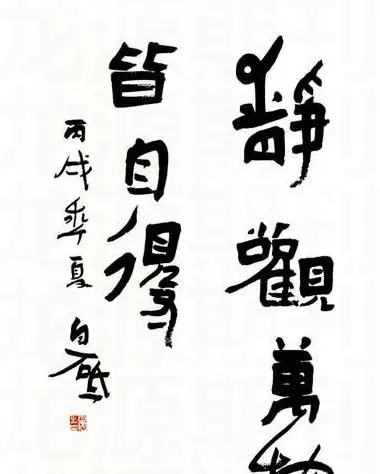 靜觀萬物
皆自得
丙戌季夏 白砥